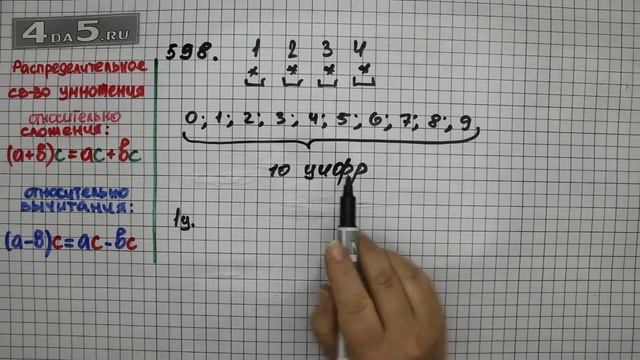 4DA5.RU
Распределительное
св-во умножения
относительно
сложения:
(а+в)с=ас+вс
относительно
вычитания:
(а-в)с=ас-вс
598. 1 2 3 4
* * * *
0; 1; 2; 3; 4; 5; 6; 7; 8; 9
10 цифр
1ц.